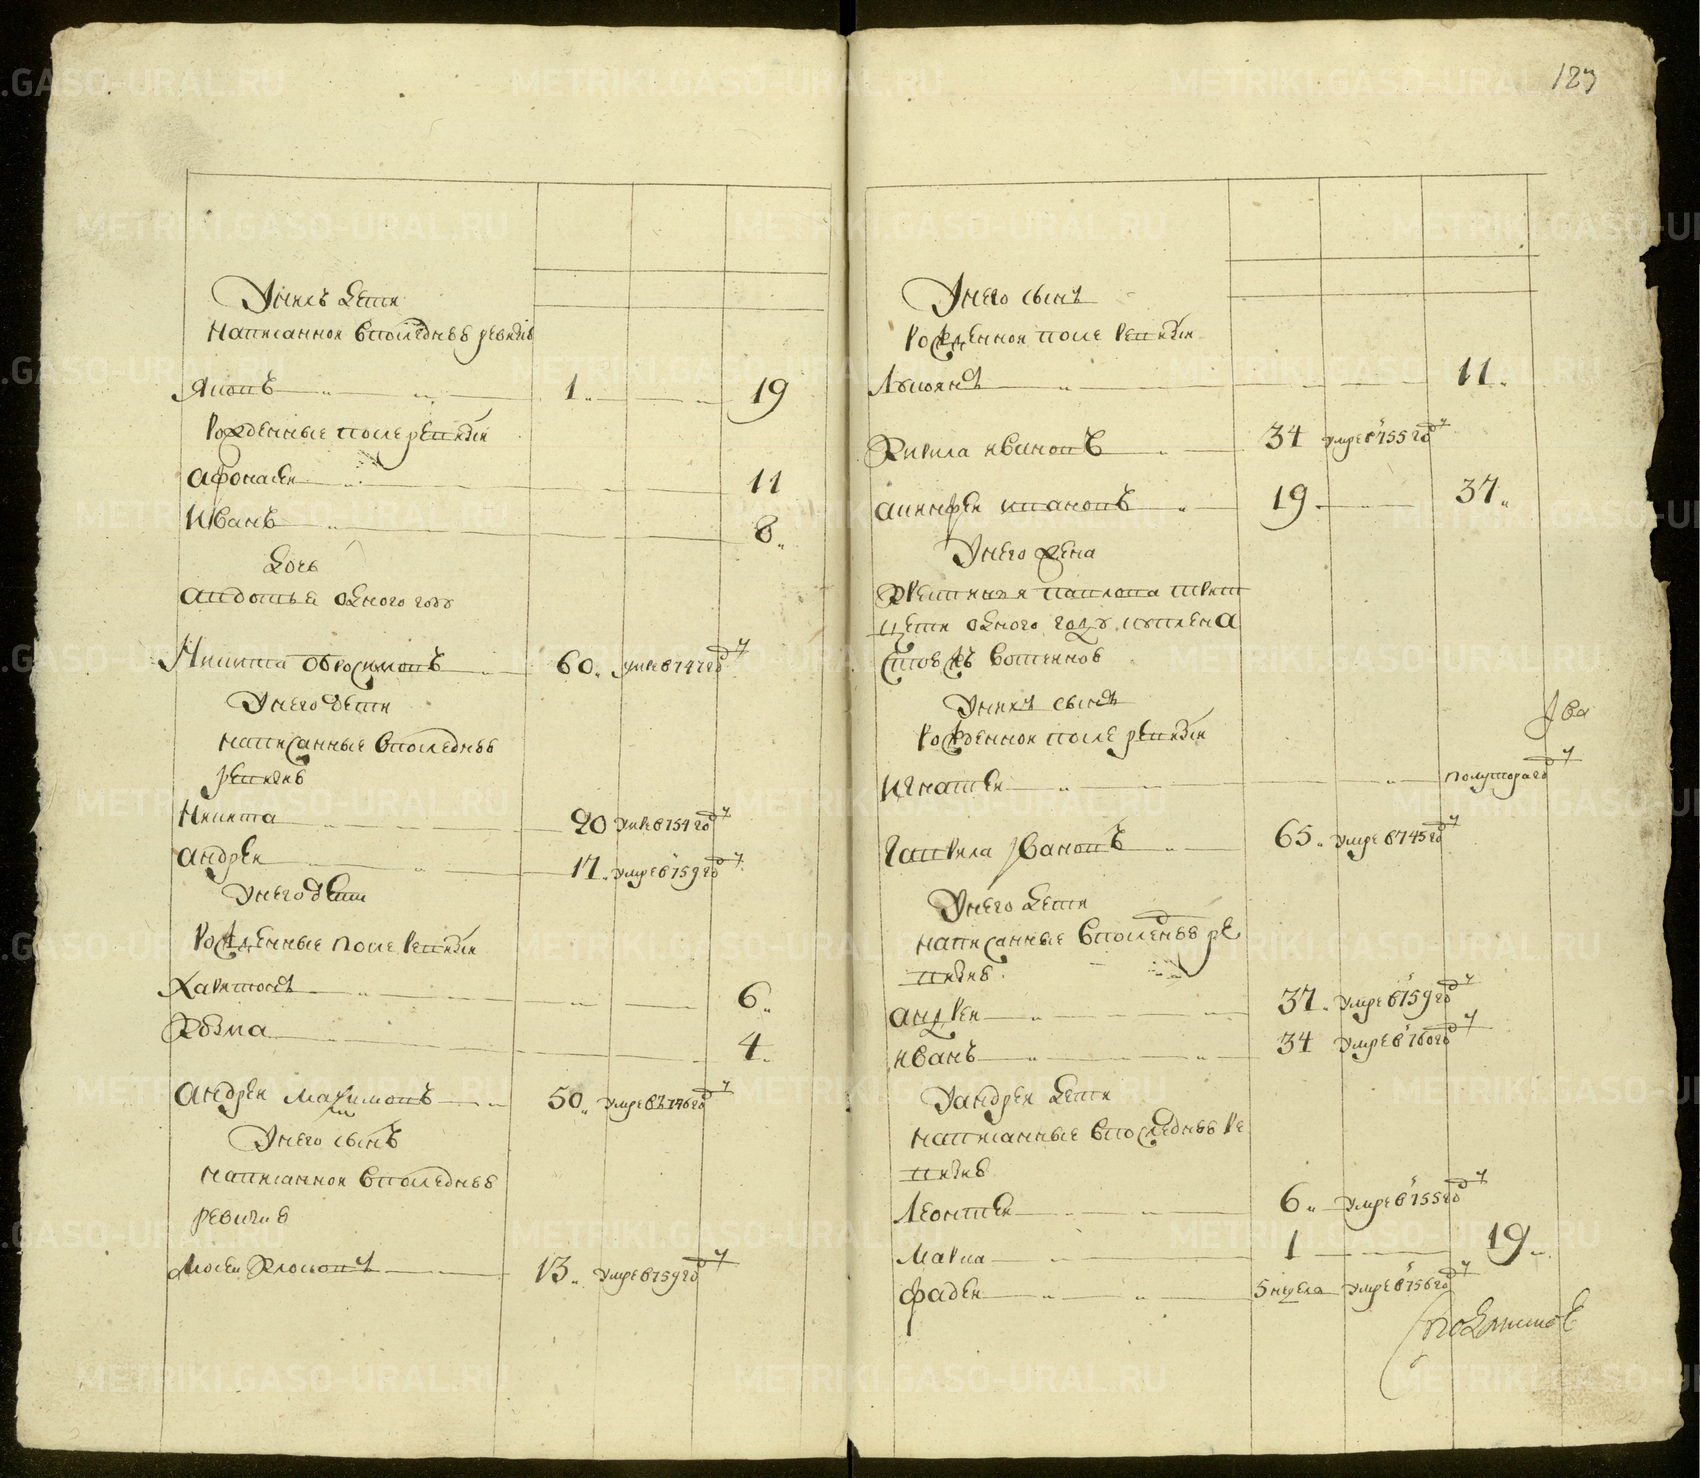 183
У нихъ дети
написанной в последнеѣ ревизiѣ
Яковъ 1 19
рожденные после ревизiи
Афонасей 11
Иванъ 8
дочь
Авдотья одного году
Никита Обросимовъ 60 умре в 747 году
У него дети
написанные в последнеѣ
ревизiѣ
Никита 20 умре в 754 году
Андрей 17 умре в 759 году
У него дети
рожденные после ревизiи
Харитонъ 6
Козма 4
Андрей Максимовъ 50 умре в 746 году
У него сынъ
написанной в последнеѣ
ревизиѣ
Мосей 13 умре в 759 году
У него сынъ
рожденной после ревизiи
Лукьянъ 11
Кирила Ивановъ 34 умре в 755 году
Алимфей 19 37
У него жена
одного году
У нихъ сынъ
рожденной после ревизiи
Игнатей полутора году
Гаврила Ивановъ 65 умре в 745 году
У него дети
написанные в последнеѣ ре
визиѣ
Андрей 37 умре в 759 году
Иванъ 34 умре в 760 году
У Андрея дети
написанные в последнеѣ ре
визиѣ
Леонтей 6 умре в 755 году
Марка 1 19
Фадей 5 недель умре в 756 году
METRIKI.GASO-URAL.RU